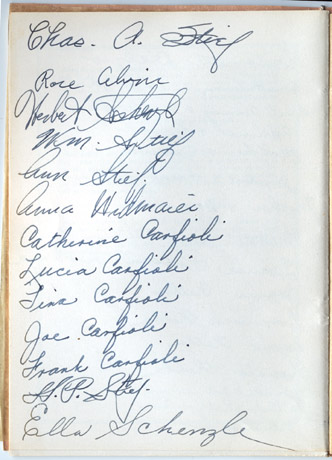 Chas. A. Stief
Rose Alvin
Herbert Schenk
Wm. Stief
Ann Stief.
Anna Widmaier
Catherine Carfioli
Lucia Carfioli
Tina Carfioli
Joe Carfioli
Frank Carfioli
H. P. Stief.
Ella Schenzle